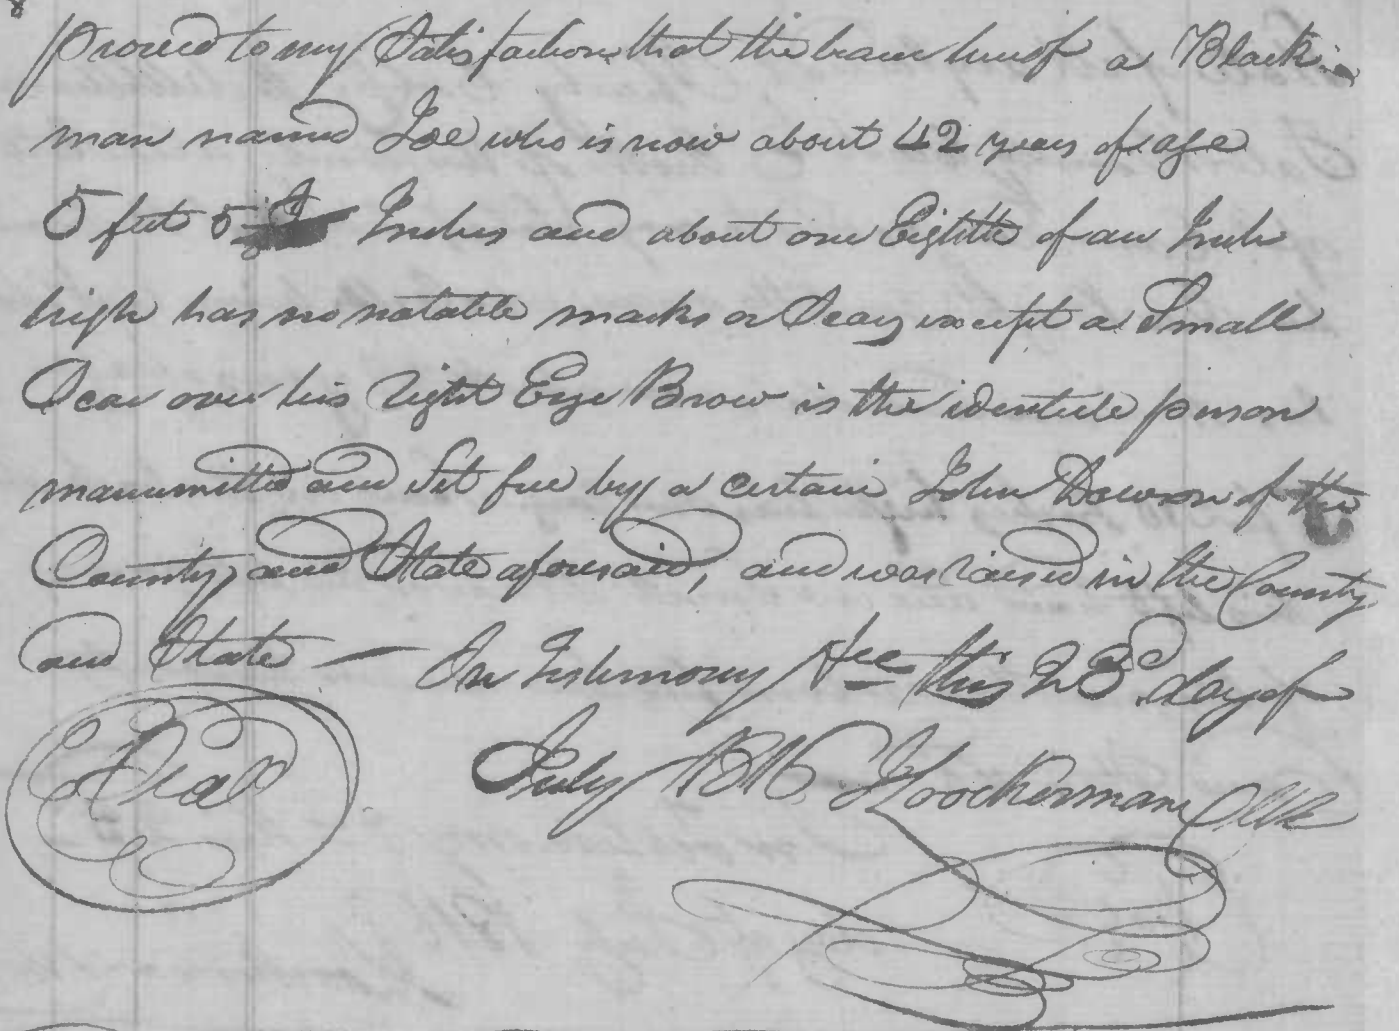 proved to my Satisfaction that the bearer hereof a Black
man named Joe who is now about 42 years of age
5 feet 5 Inches and about one Eighth of an Inch
high has no notable marks or Scars except a Small
Scar over his right Eye Brow is the identicle person
manumitted and Set free by a certain John Dawson of the
County and State aforesaid, and was raised in the County
and State — In Testimony &ce this 23d day of
Seal July 1816 J Loockerman Clk